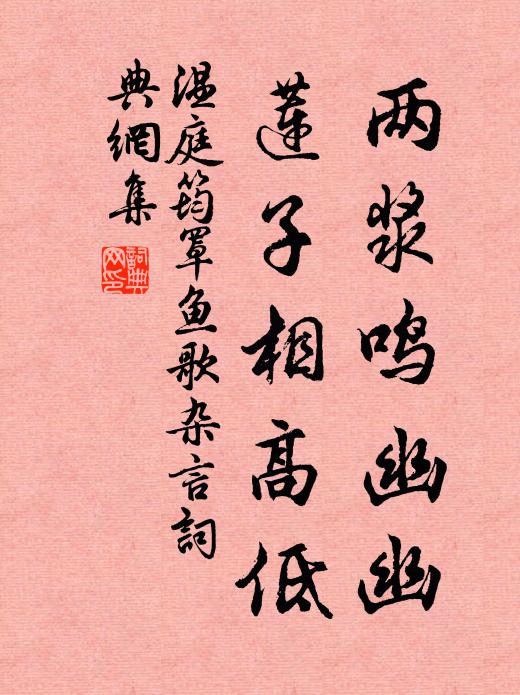 两桨鸣幽幽
莲子相高低
温庭筠罩鱼歌杂言詞
典網集
詞典
网印